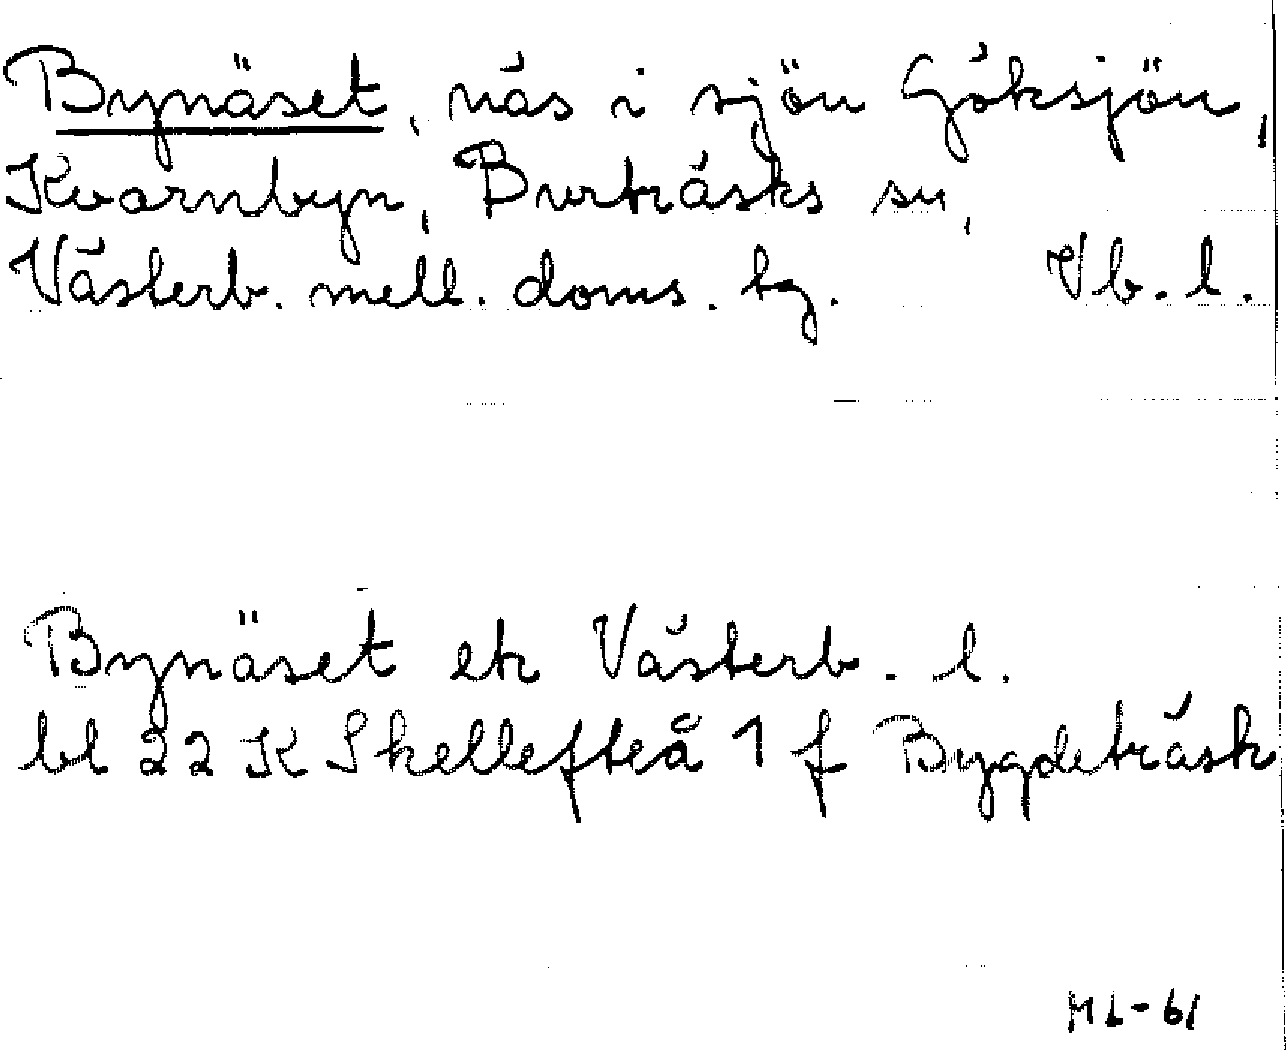 Bynäset, näs i sjön Göksjön,
Kvarnbyn, Burträsks sn,
Västerb. mell. doms. tg. Vb. l.
Bynäset ek Västerb. l.
bl 22 K Skellefteå 1 f Bygdeträsk
ML-61